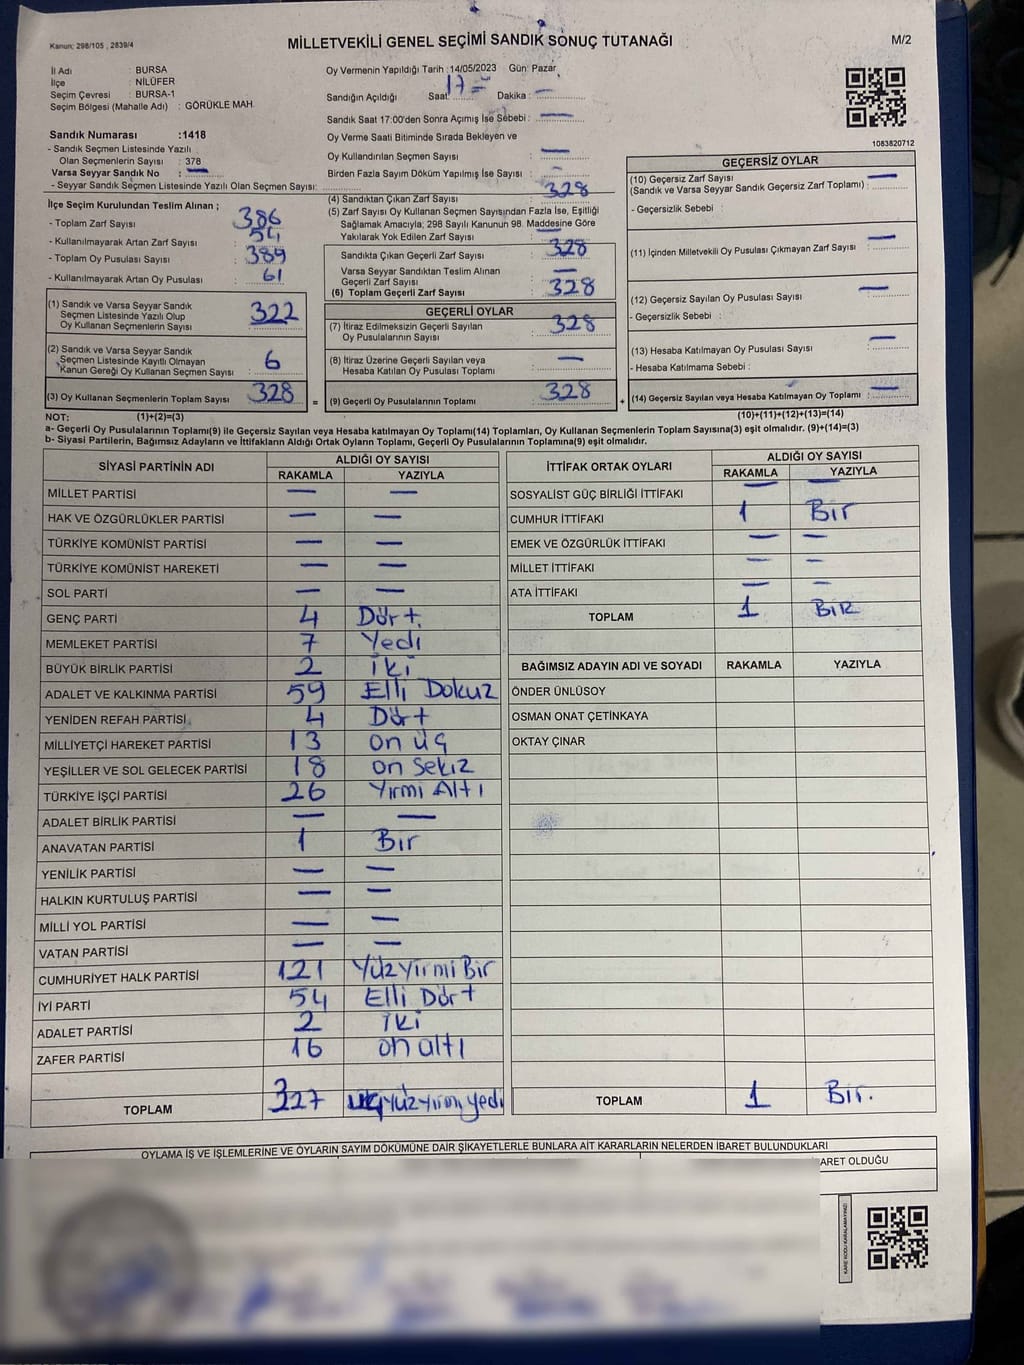 Kanun; 298/105 , 2839/4
MİLLETVEKİLİ GENEL SEÇİMİ SANDIK SONUÇ TUTANAĞI
M/2
İl Adı : BURSA
İlçe : NİLÜFER
Seçim Çevresi : BURSA-1
Seçim Bölgesi (Mahalle Adı) : GÖRÜKLE MAH.
Sandık Numarası :1418
- Sandık Seçmen Listesinde Yazılı
Olan Seçmenlerin Sayısı : 378
Varsa Seyyar Sandık No : —
- Seyyar Sandık Seçmen Listesinde Yazılı Olan Seçmen Sayısı:
İlçe Seçim Kurulundan Teslim Alınan ;
- Toplam Zarf Sayısı : 386
- Kullanılmayarak Artan Zarf Sayısı : 54
- Toplam Oy Pusulası Sayısı : 389
- Kullanılmayarak Artan Oy Pusulası : 61
(1) Sandık ve Varsa Seyyar Sandık
Seçmen Listesinde Yazılı Olup
Oy Kullanan Seçmenlerin Sayısı : 322
(2) Sandık ve Varsa Seyyar Sandık
Seçmen Listesinde Kayıtlı Olmayan
Kanun Gereği Oy Kullanan Seçmen Sayısı : 6
(3) Oy Kullanan Seçmenlerin Toplam Sayısı : 328
Oy Vermenin Yapıldığı Tarih :14/05/2023 Gün: Pazar
Sandığın Açıldığı Saat: 17 = Dakika : —
Sandık Saat 17:00'den Sonra Açımış İse Sebebi : —
Oy Verme Saati Bitiminde Sırada Bekleyen ve
Oy Kullandırılan Seçmen Sayısı : —
Birden Fazla Sayım Döküm Yapılmış İse Sayısı : —
(4) Sandıktan Çıkan Zarf Sayısı : 328
(5) Zarf Sayısı Oy Kullanan Seçmen Sayısından Fazla İse, Eşitliği
Sağlamak Amacıyla; 298 Sayılı Kanunun 98. Maddesine Göre
Yakılarak Yok Edilen Zarf Sayısı : —
Sandıkta Çıkan Geçerli Zarf Sayısı : 328
Varsa Seyyar Sandıktan Teslim Alınan
Geçerli Zarf Sayısı : —
(6) Toplam Geçerli Zarf Sayısı : 328
GEÇERLİ OYLAR
(7) İtiraz Edilmeksizin Geçerli Sayılan
Oy Pusulalarının Sayısı : 328
(8) İtiraz Üzerine Geçerli Sayılan veya
Hesaba Katılan Oy Pusulası Toplamı : —
= (9) Geçerli Oy Pusulalarının Toplamı : 328 +
1083820712
GEÇERSİZ OYLAR
(10) Geçersiz Zarf Sayısı —
(Sandık ve Varsa Seyyar Sandık Geçersiz Zarf Toplamı) :
- Geçersizlik Sebebi :
(11) İçinden Milletvekili Oy Pusulası Çıkmayan Zarf Sayısı : —
(12) Geçersiz Sayılan Oy Pusulası Sayısı : —
- Geçersizlik Sebebi :
(13) Hesaba Katılmayan Oy Pusulası Sayısı : —
- Hesaba Katılmama Sebebi :
(14) Geçersiz Sayılan veya Hesaba Katılmayan Oy Toplamı : —
NOT: (1)+(2)=(3) (10)+(11)+(12)+(13)=(14)
a- Geçerli Oy Pusulalarının Toplamı(9) ile Geçersiz Sayılan veya Hesaba katılmayan Oy Toplamı(14) Toplamları, Oy Kullanan Seçmenlerin Toplam Sayısına(3) eşit olmalıdır. (9)+(14)=(3)
b- Siyasi Partilerin, Bağımsız Adayların ve İttifakların Aldığı Ortak Oyların Toplamı, Geçerli Oy Pusulalarının Toplamına(9) eşit olmalıdır.
SİYASİ PARTİNİN ADI ALDIĞI OY SAYISI
RAKAMLA YAZIYLA
MİLLET PARTİSİ — —
HAK VE ÖZGÜRLÜKLER PARTİSİ — —
TÜRKİYE KOMÜNİST PARTİSİ — —
TÜRKİYE KOMÜNİST HAREKETİ — —
SOL PARTİ — —
GENÇ PARTİ 4 Dört
MEMLEKET PARTİSİ 7 Yedi
BÜYÜK BİRLİK PARTİSİ 2 iki
ADALET VE KALKINMA PARTİSİ 59 Elli Dokuz
YENİDEN REFAH PARTİSİ 4 Dört
MİLLİYETÇİ HAREKET PARTİSİ 13 on üç
YEŞİLLER VE SOL GELECEK PARTİSİ 18 on Sekiz
TÜRKİYE İŞÇİ PARTİSİ 26 Yirmi Altı
ADALET BİRLİK PARTİSİ — —
ANAVATAN PARTİSİ 1 Bir
YENİLİK PARTİSİ — —
HALKIN KURTULUŞ PARTİSİ — —
MİLLİ YOL PARTİSİ — —
VATAN PARTİSİ — —
CUMHURİYET HALK PARTİSİ 121 Yüz Yirmi Bir
İYİ PARTİ 54 Elli Dört
ADALET PARTİSİ 2 iki
ZAFER PARTİSİ 16 on altı
TOPLAM 327 üçyüzyirmi yedi
İTTİFAK ORTAK OYLARI ALDIĞI OY SAYISI
RAKAMLA YAZIYLA
SOSYALİST GÜÇ BİRLİĞİ İTTİFAKI — —
CUMHUR İTTİFAKI 1 Bir
EMEK VE ÖZGÜRLÜK İTTİFAKI — —
MİLLET İTTİFAKI — —
ATA İTTİFAKI — —
TOPLAM 1 BİR
BAĞIMSIZ ADAYIN ADI VE SOYADI RAKAMLA YAZIYLA
ÖNDER ÜNLÜSOY
OSMAN ONAT ÇETİNKAYA
OKTAY ÇINAR
TOPLAM 1 Bir.
OYLAMA İŞ VE İŞLEMLERİNE VE OYLARIN SAYIM DÖKÜMÜNE DAİR ŞİKAYETLERLE BUNLARA AİT KARARLARIN NELERDEN İBARET BULUNDUKLARI
ARET OLDUĞU
KARE KODU KARALAMAYINIZ!